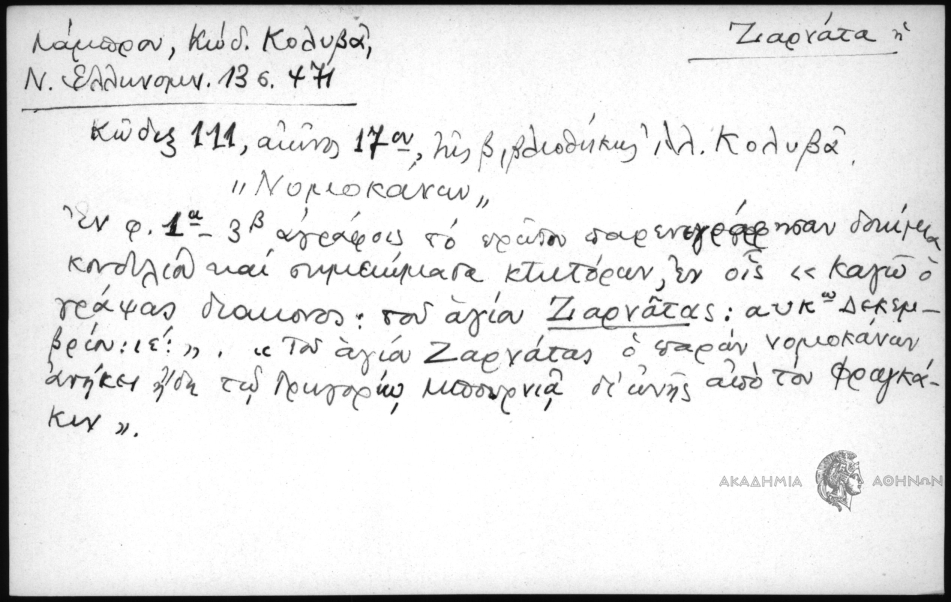 Λάμπρου, Κώδ. Κολυβᾶ,
Ζιαρνάτα ἡ
Ν. Ἑλληνομν. 13 σ. 471
Κῶδιξ 111, αἰῶνος 17ου, τῆς βιβλιοθήκης Ἀλ. Κολυβᾶ.
"Νομοκάνων"
Ἐν φ. 1α - 3β ἀγράφοις τὸ πρῶτον παρενεγράφησαν δοκίμια
κονδυλίου καὶ σημειώματα κτητόρων, ἐν οἷς « καγὼ ὁ
γράψας διακονος: τοῦ ἁγίου Ζιαρνᾶτας: αυκω Δεκεμ-
βρίου: ιε: ». « Τοῦ ἁγίου Ζαρνάτας ὁ παρὼν νομοκάνων
ἀνήκει ἤδη τῷ Γρηγορίῳ Μπουρνιᾷ δι' ὠνῆς ἀπὸ τὸν Φραγκά-
κην ».
ΑΚΑΔΗΜΙΑ ΑΘΗΝΩΝ